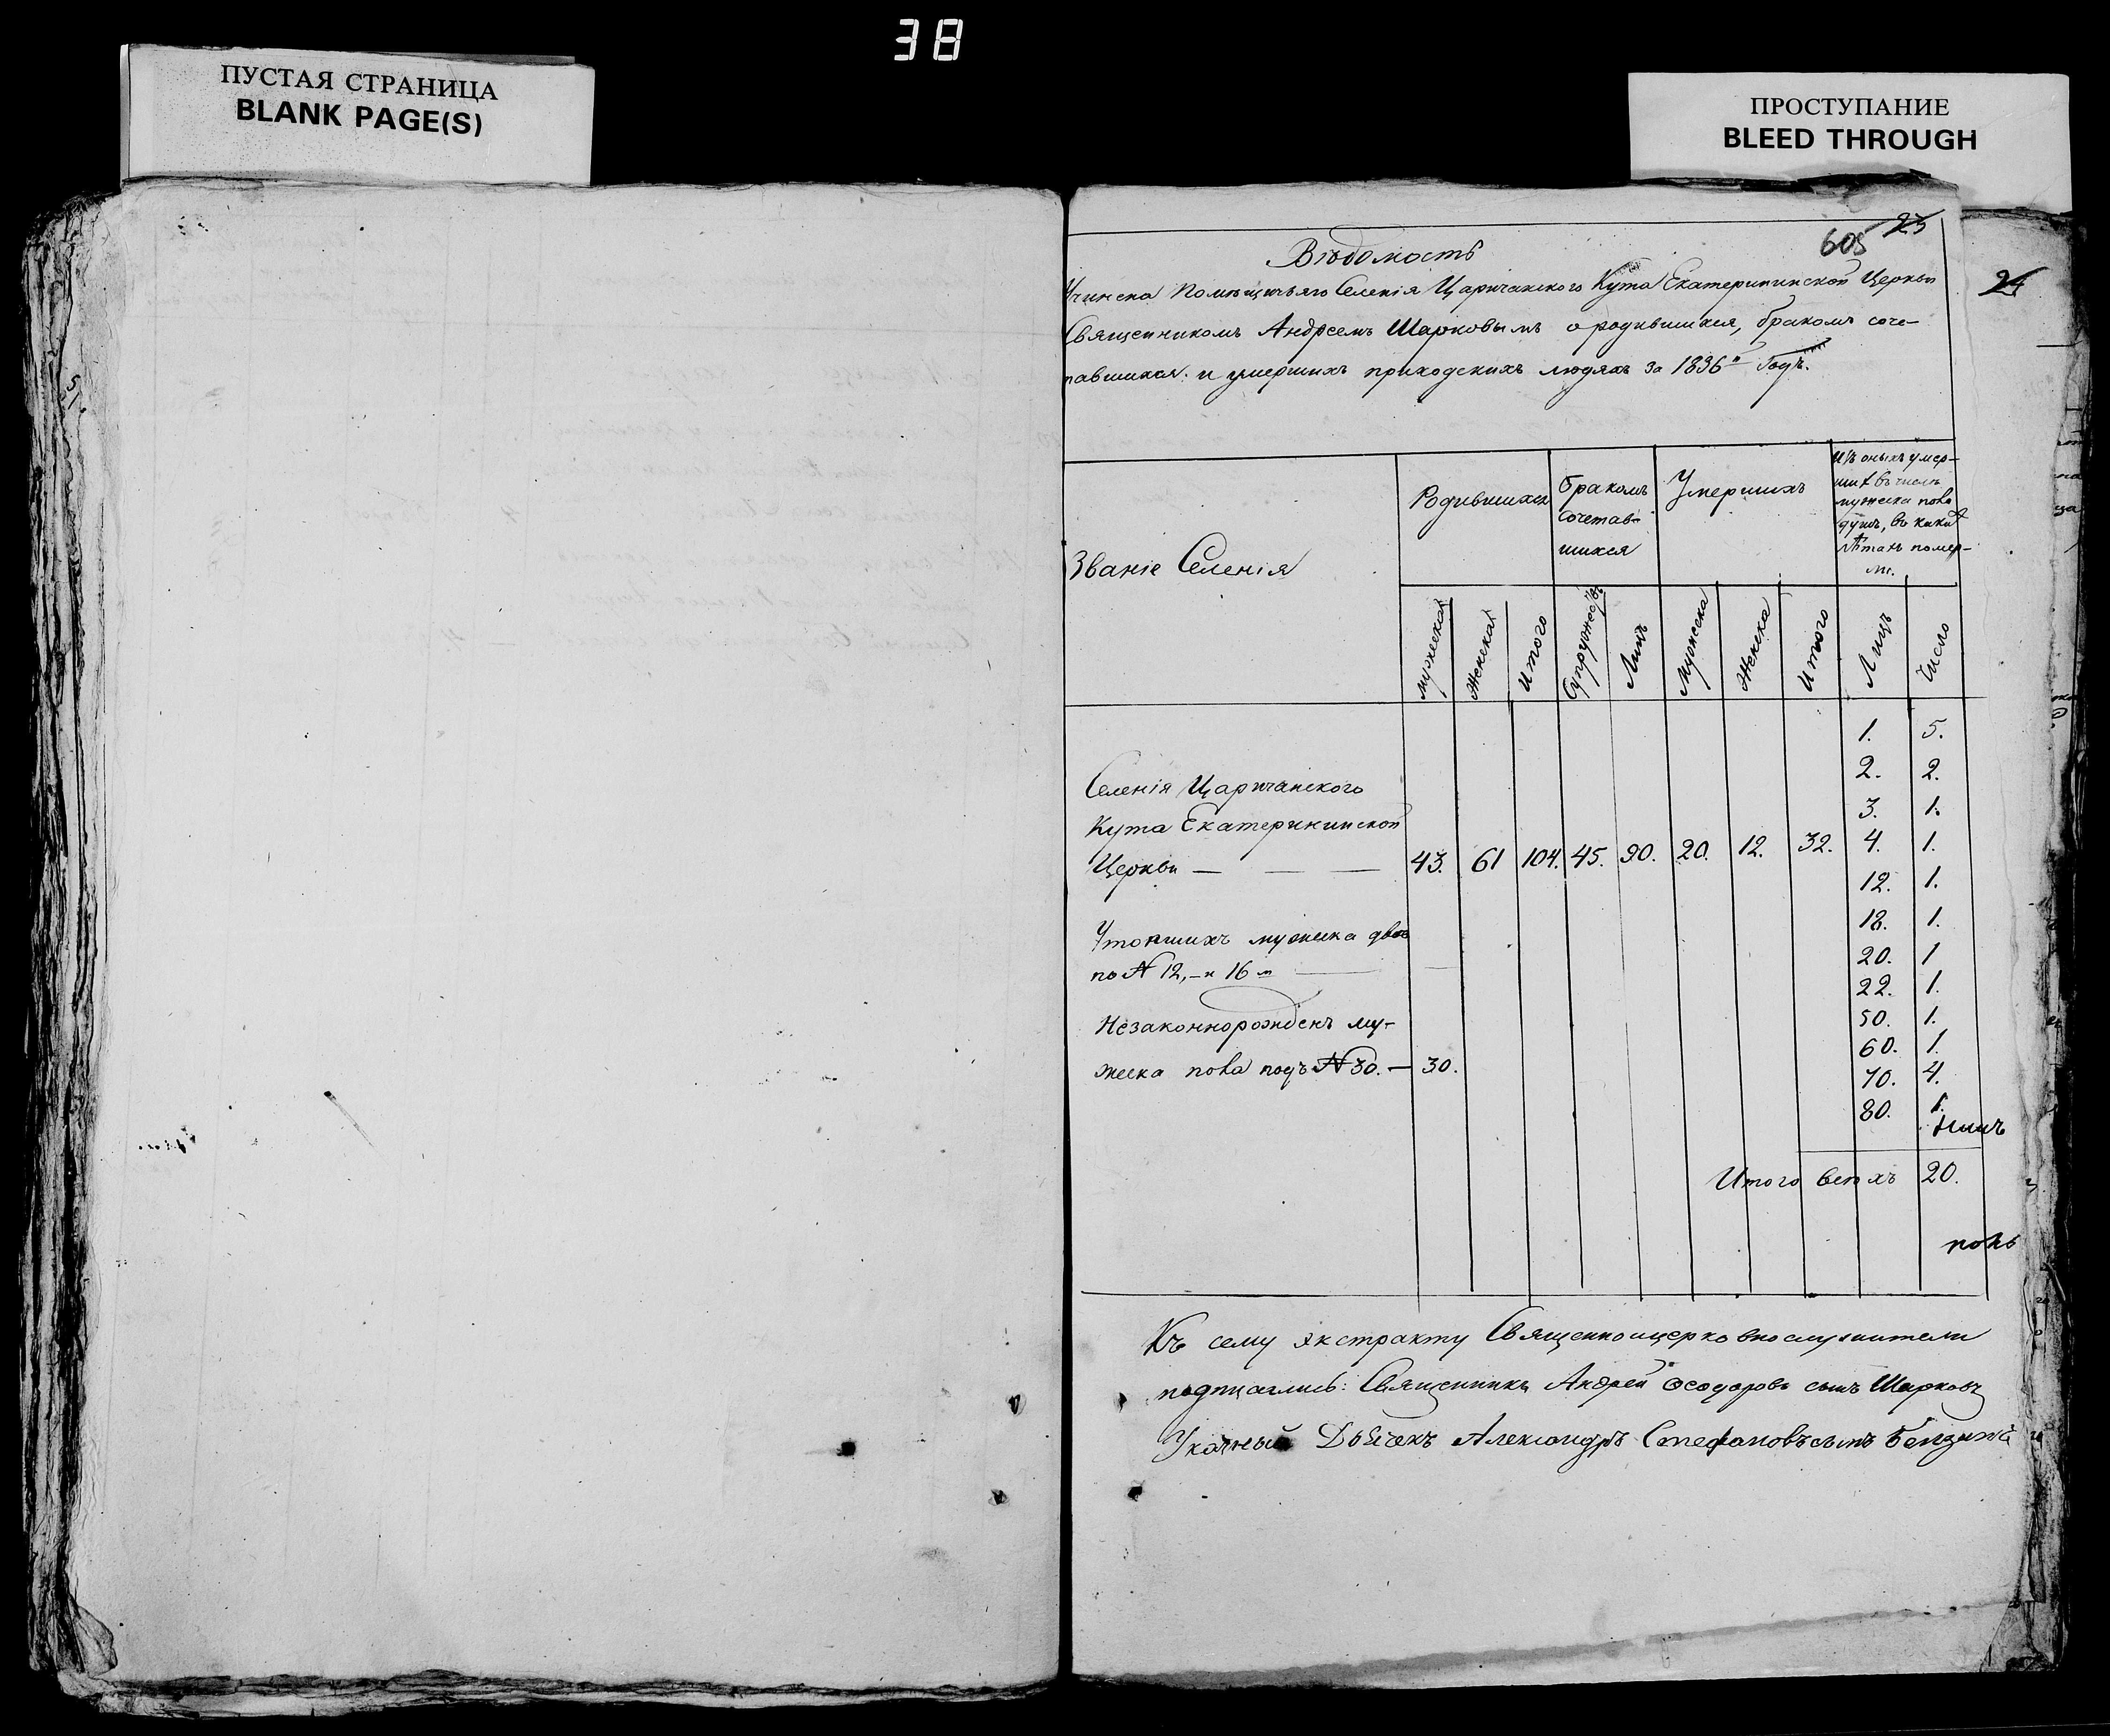 38
ПУСТАЯ СТРАНИЦА
BLANK PAGE(S)
ПРОСТУПАНИЕ
BLEED THROUGH
605 23
24
Вѣдомость
Учинена Помѣщичьяго Селенія Царичанского Кута Екатерининской Церкви
Священникомъ Андреемъ Шарковымъ о родившихся, бракомъ соче-
тавшихся и умершихъ приходскихъ людяхъ за 1836й Годъ.
Званіе Селенія
Родившихся
бракомъ
сочетав-
шихся
Умершихъ
Изъ оныхъ умер-
ших въ числѣ
мужеска пола
душъ, въ каких
лѣтахъ помер-
ли.
мужеска
Женска
Итого
Супружествъ
Лицъ
Мужеска
Женска
Итого
Лицъ
Число
1. 5.
2. 2.
3. 1.
4. 1.
12. 1.
18. 1.
20. 1
22. 1.
50. 1.
60. 1.
70. 4.
80. 1.
Селенія Царичанского
Кута Екатерининской
Церкви — — — 43. 61 104. 45. 90. 20. 12. 32.
Утопшихъ мужеска двое
по № 12, и 16 м
Незаконнорожденъ му-
жеска пола подъ № 30. — 30.
Итого всѣхъ 20.
Къ сему экстракту Священноицерковнослужители
подписались: Священникъ Андрей Ѳеодоровъ сынъ Шарковъ
Указный Дьячекъ Александръ Стефановъ сынъ